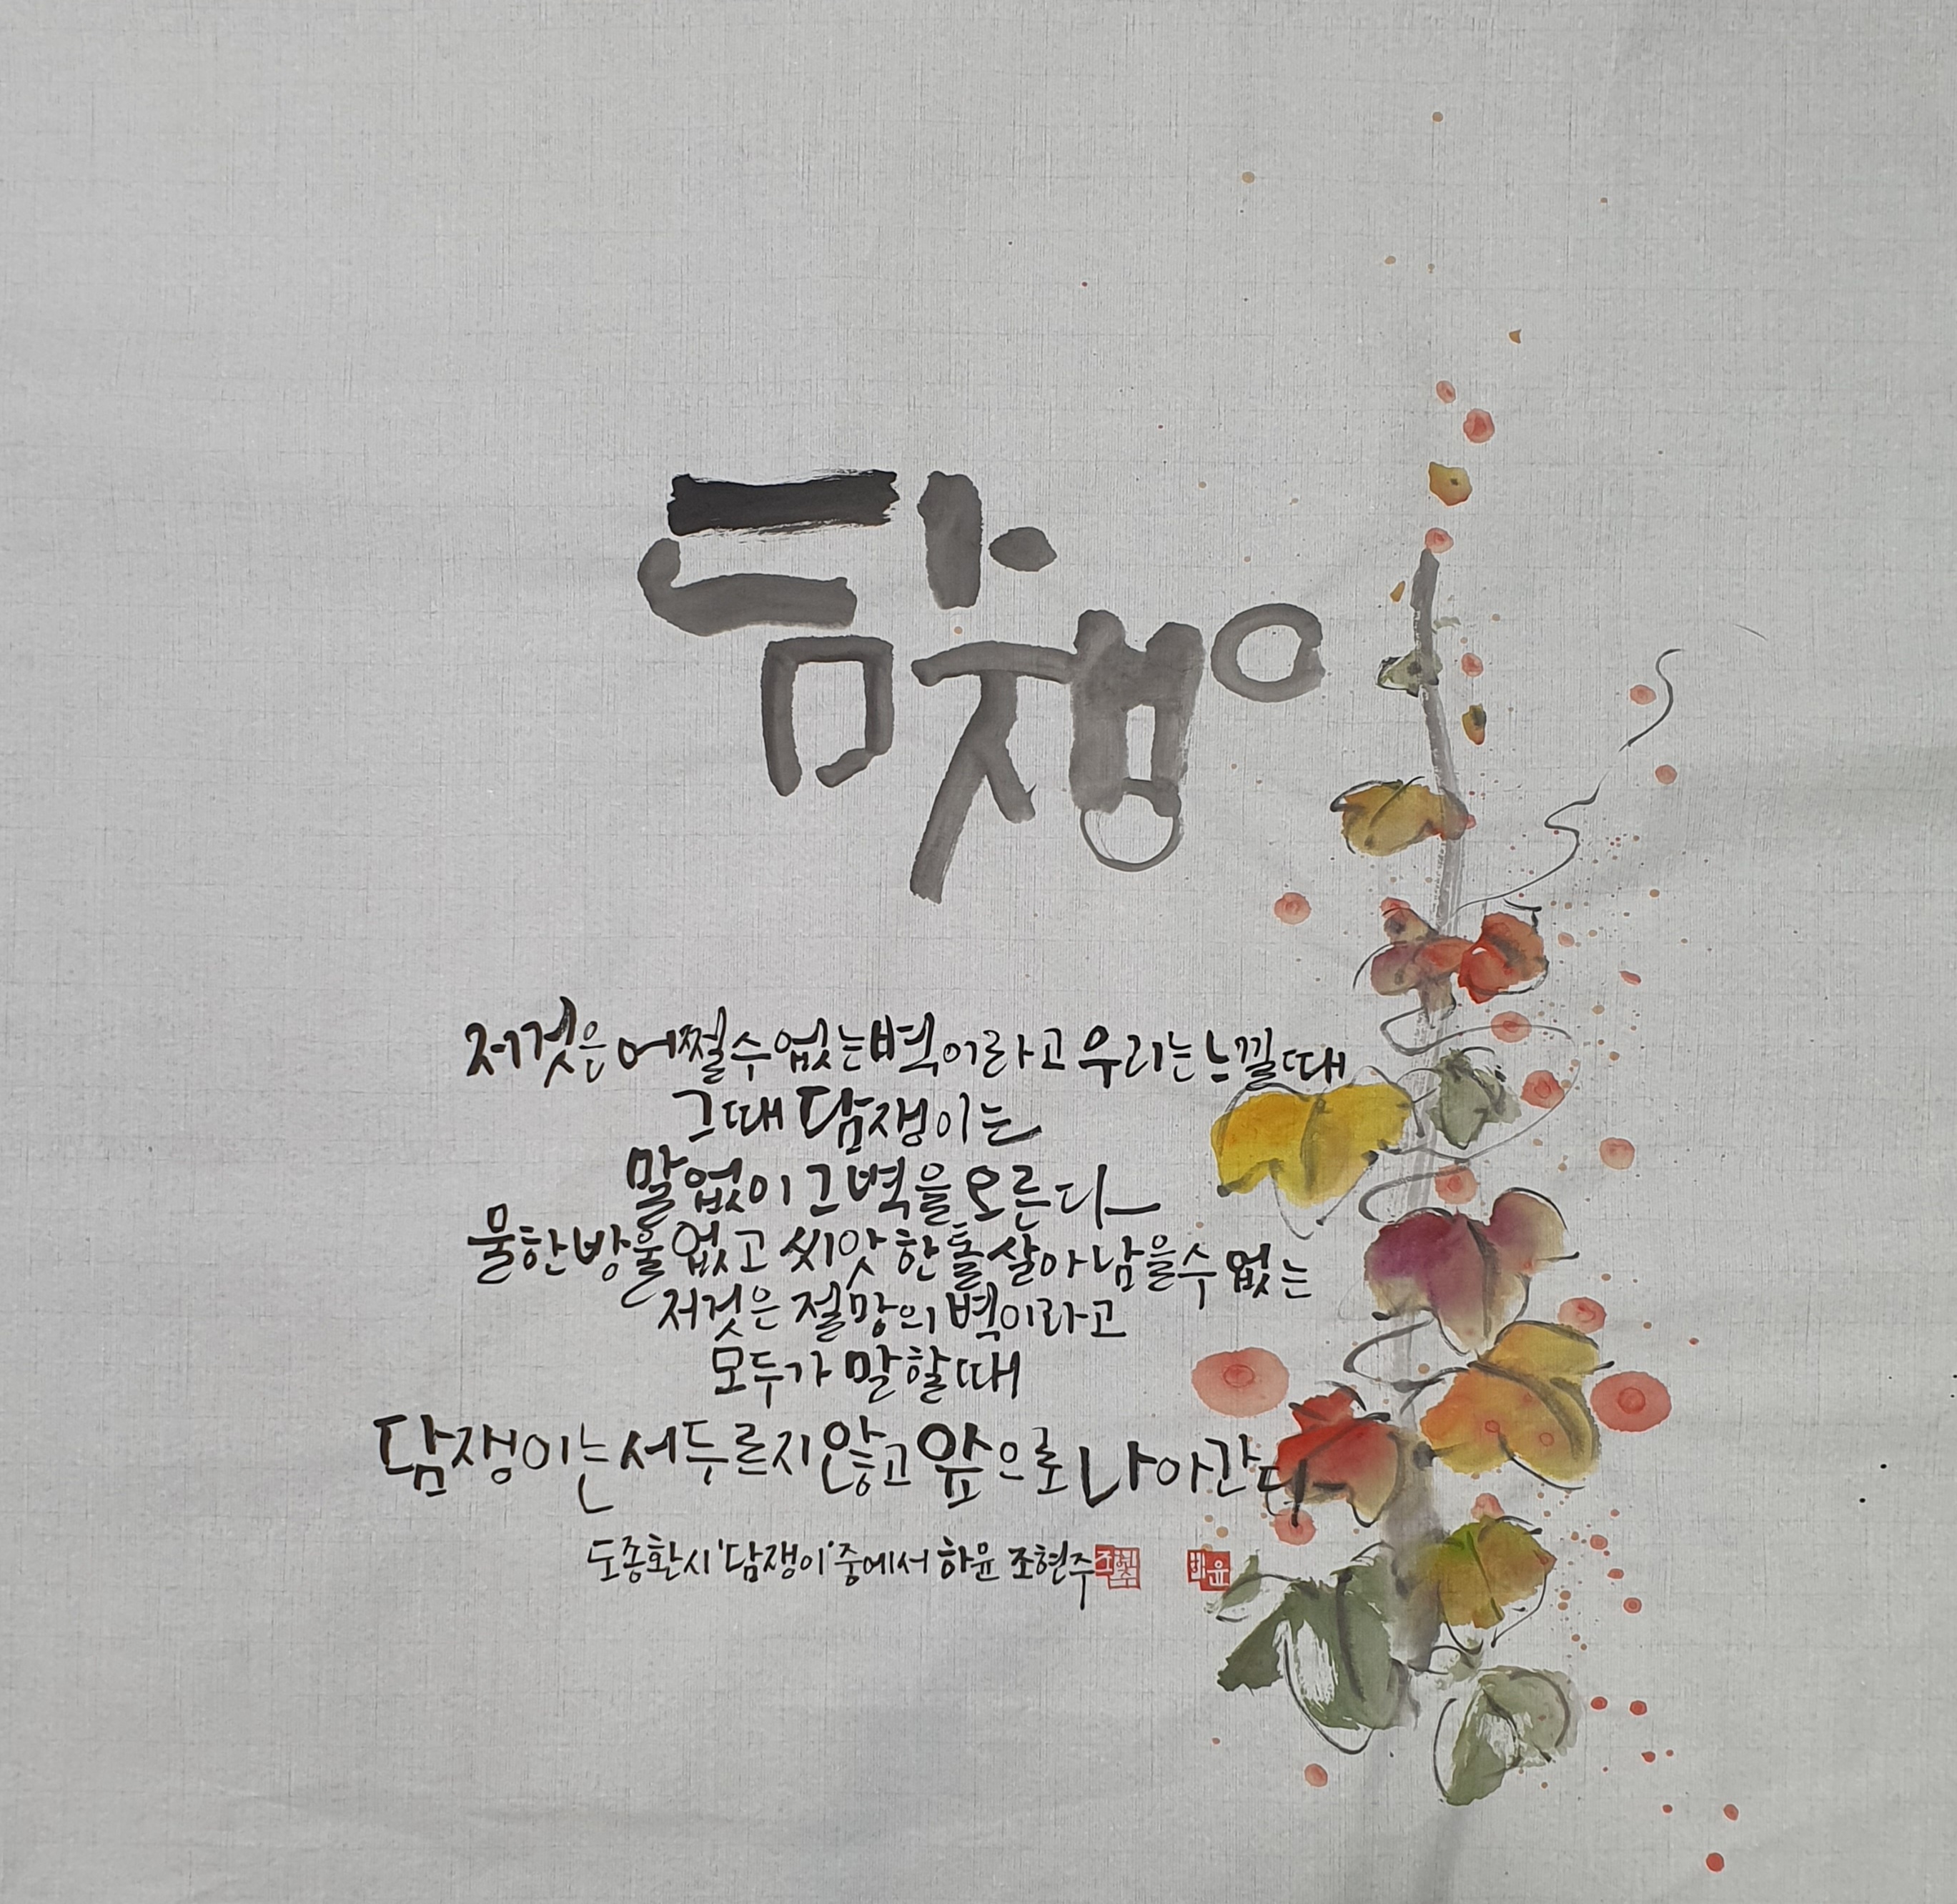 담쟁이
저것은 어쩔 수 없는 벽이라고 우리는 느낄 때
그때 담쟁이는
말없이 그 벽을 오른다
물 한방울 없고 씨앗 한 톨 살아남을 수 없는
저것은 절망의 벽이라고
모두가 말할 때
담쟁이는 서두르지 않고 앞으로 나아간다
도종환 시 '담쟁이' 중에서 하윤 조현주
조현주 하윤